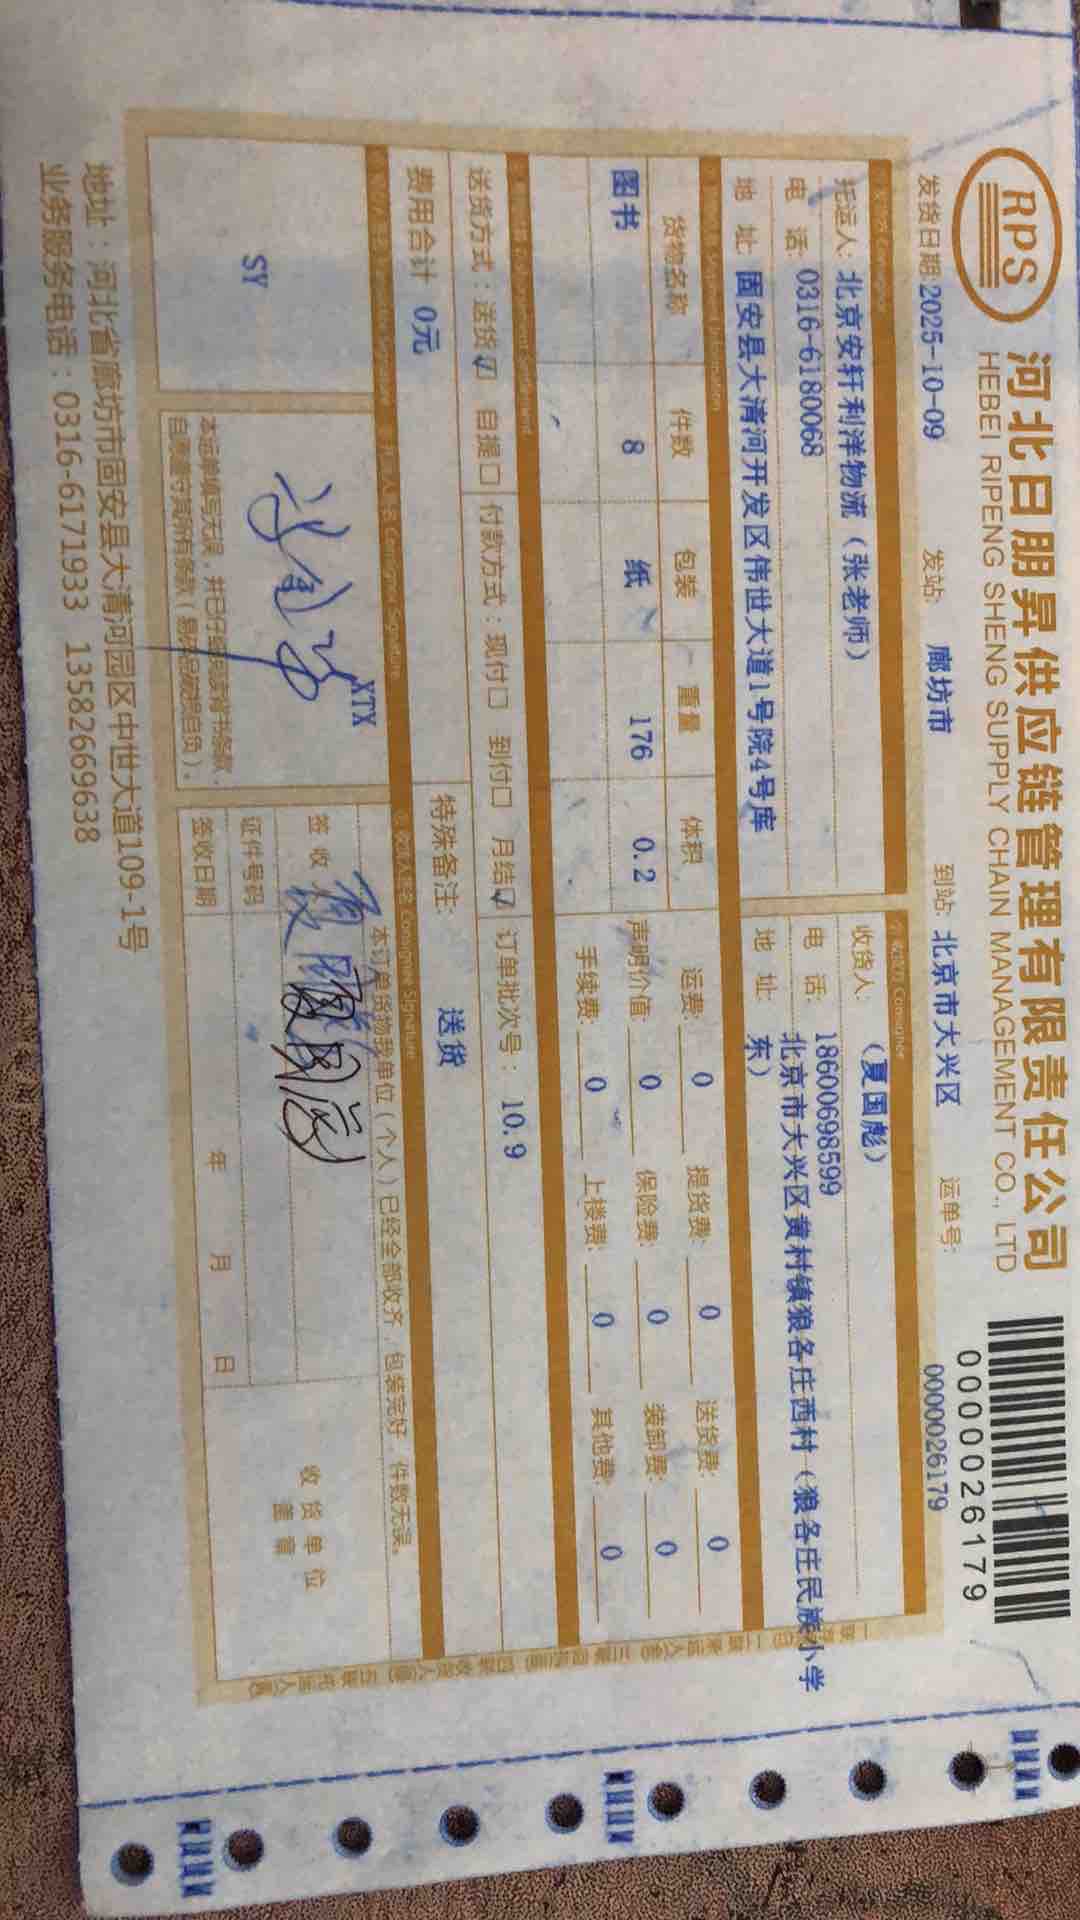 RPS
河北日朋昇供应链管理有限责任公司
HEBEI RIPENG SHENG SUPPLY CHAIN MANAGEMENT CO., LTD
0000026179
发货日期:2025-10-09 发站: 廊坊市 到站: 北京市大兴区 运单号: 0000026179
托运人: 北京安轩利洋物流（张老师）
电 话: 0316-6180068
地 址: 固安县大清河开发区伟世大道1号院4号库
收货人: （夏国彪）
电 话: 18600698599
地 址: 北京市大兴区黄村镇狼各庄西村（狼各庄民族小学
东）
货物名称 件数 包装 重量 体积
图书 8 纸 176 0.2
运费: 0 提货费: 0 送货费: 0
声明价值: 0 保险费: 0 装卸费: 0
手续费: 0 上楼费: 0 其他费: 0
送货方式：送货☑ 自提□ 付款方式：现付□ 到付□ 月结☑ 订单批次号： 10.9
费用合计 0元 特殊备注: 送货
Consignor Signature
Consignee Signature
SY
XTX
本运单填写无误，并已仔细阅读背书条款，
自愿遵守其所有条款（易碎品破损自负）。
本订单货物我单位（个人）已经全部收齐，包装完好，件数无误。
签 收 人
证件号码
签收日期 年 月 日
收货单位
盖章
地址：河北省廊坊市固安县大清河园区中世大道109-1号
业务服务电话：0316-6171933 13582669638